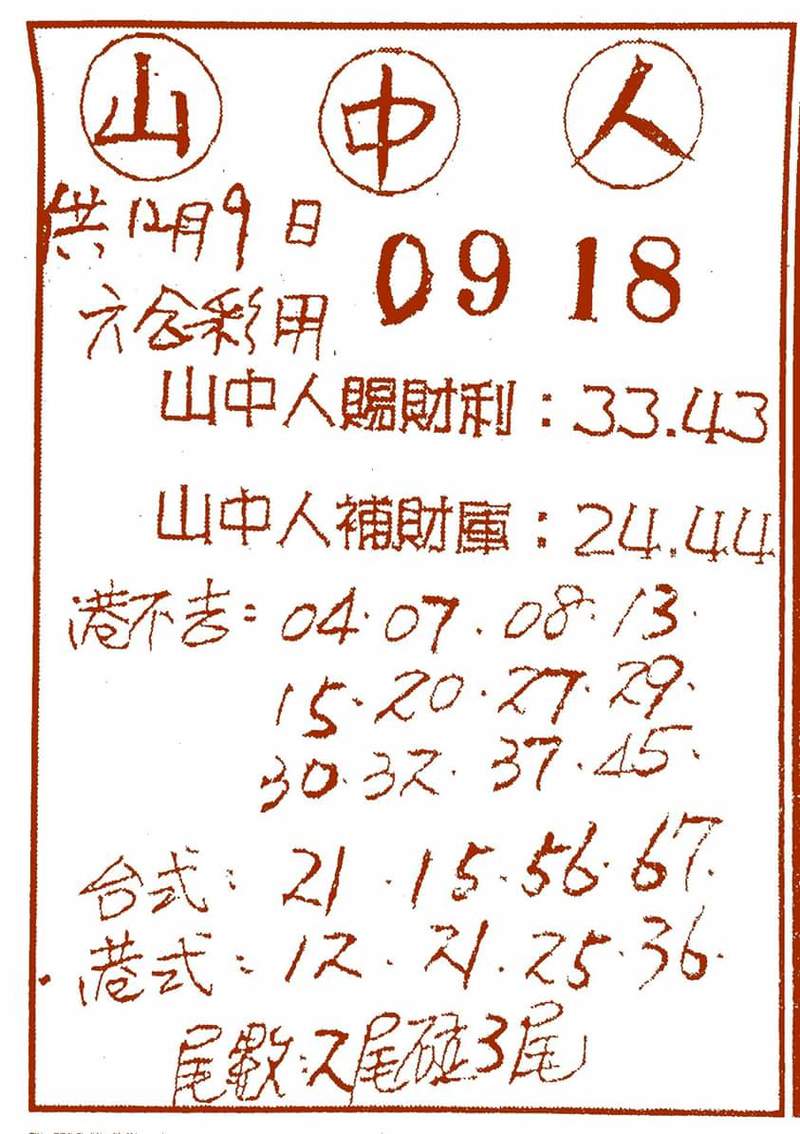 山 中 人
供12月9日
09 18
六合彩用
山中人賜財利：33.43
山中人補財庫：24.44
港不吉：04.07.08.13.
15.20.27.29.
30.32.37.45.
台式：21.15.56.67.
港式：12.21.25.36.
尾數：2尾碰3尾